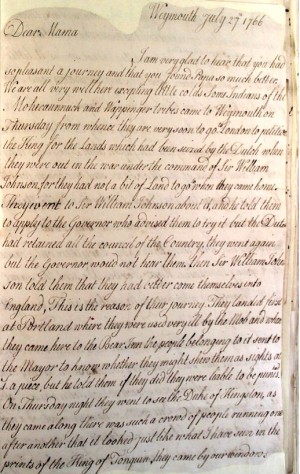 Weymouth July 27th 1766
Dear Mama
I am very glad to hear, that you had
so pleasant a journey and that you found so much better.
We are all very well here excepting little colds Some Indians of the
and Wappinger tribes came to Weymouth on
Thursday from whence they are very soon to go London to petition
the King for the Lands which had been seized by the Dutch when
they were out in the war under the command of Sir William
Johnson for they had not a bit of Land to go to when they came home.
They went to Sir William Johnson about it, and he told them
to apply to the Governor who advised them to try it but the Dutch
had retained all the council of the Country, they went again
but the Governor would not hear them. then Sir William John
son told them that they had better come themselves into
England, This is the reason of their journey They landed first
at Portland where they were used very ill by the Mob and when
they came here to the Bear Inn the people belonging to it sent to
the Mayor to know whether they might shew them as sights at
a piece, but he told them if they did they were liable to be punish
On Thursday night they went to see the Duke of Kingston, as
they came along there was such a crowd of people running one
after another that it looked just like what I have seen in the
prints of the King of Tonquin they came by our windows